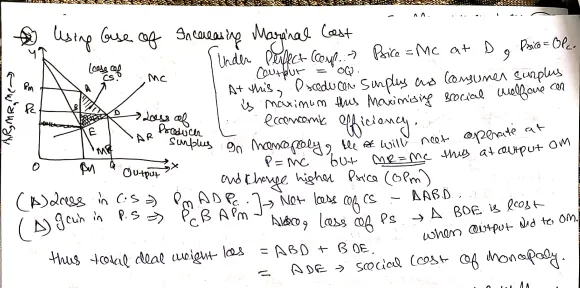 Using Case of Increasing Marginal Cost
Y
loss of
CS.
MC
Pm
A
Pc
B
D
Loss of
Producer
Surplus
E
AR
MR
O
M
Q
Output → X
Under Perfect Comp. → Price = MC at D, Price = OPc.
Output = OQ.
At this, Producer Surplus and Consumer Surplus
is maximum thus Maximising social welfare or
economic efficiency.
In monopoly, will not operate at
P=MC but MR=MC thus at output OM
and charge higher Price (OPm)
(Δ) Loss in C.S ⇒ Pm A D Pc.
(Δ) gain in P.S ⇒ Pc B A Pm
Net loss of CS - ΔABD.
Also, Loss of PS → Δ BDE is lost
when output to OM.
Thus total deal weight loss = ABD + BDE.
= ADE → social cost of monopoly.